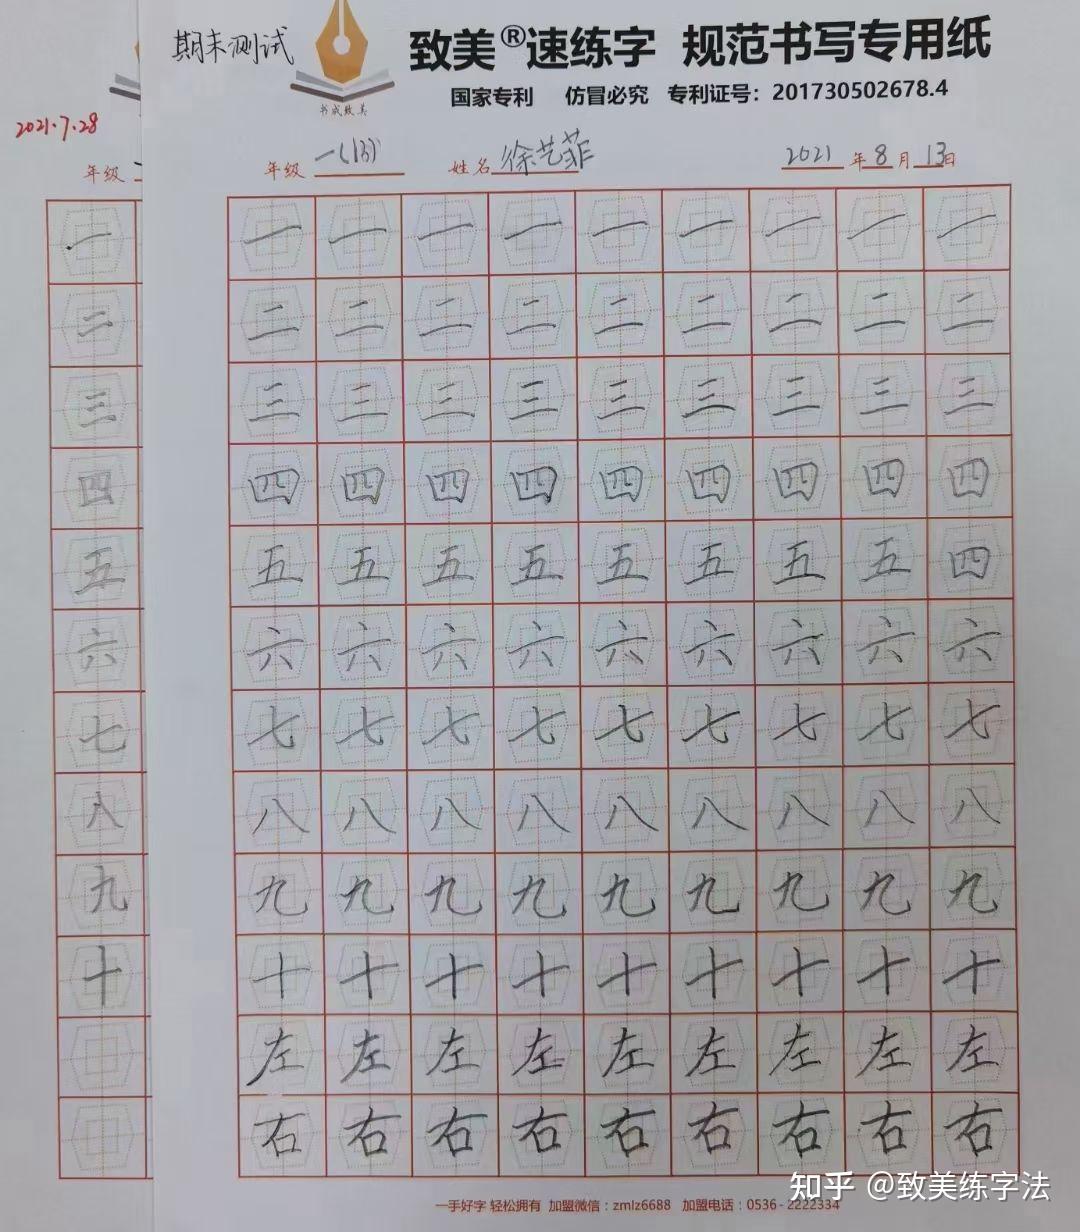 期末测试
书成致美
致美®速练字 规范书写专用纸
国家专利 仿冒必究 专利证号：201730502678.4
2021.7.28
年级
年级 一(13) 姓名 徐艺菲 2021 年 8 月 13 日
一 一 一 一 一 一 一 一 一 一
二 二 二 二 二 二 二 二 二 二
三 三 三 三 三 三 三 三 三 三
四 四 四 四 四 四 四 四 四 四
五 五 五 五 五 五 五 五 五 四
六 六 六 六 六 六 六 六 六 六
七 七 七 七 七 七 七 七 七 七
八 八 八 八 八 八 八 八 八 八
九 九 九 九 九 九 九 九 九 九
十 十 十 十 十 十 十 十 十 十
左 左 左 左 左 左 左 左 左
右 右 右 右 右 右 右 右 右
一手好字 轻松拥有 加盟微信：zmlz6688 加盟电话：0536-2222334
知乎 @致美练字法